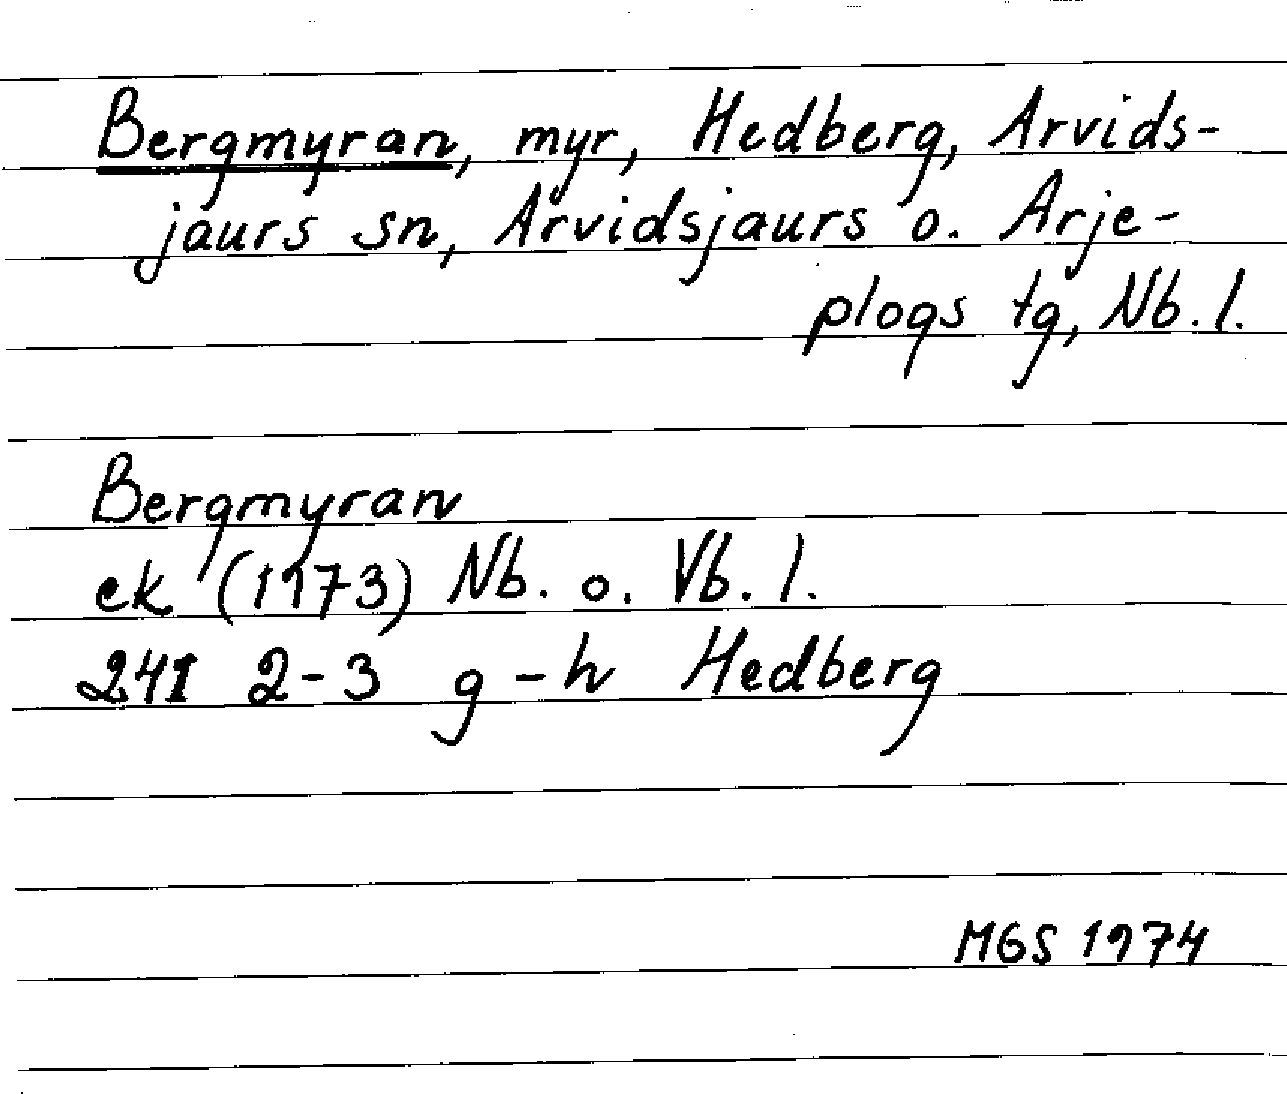 Bergmyran, myr, Hedberg, Arvids-
jaurs sn, Arvidsjaurs o. Arje-
plogs tg, Nb. l.
Bergmyran
ek (1973) Nb. o. Vb. l.
24I 2-3 g-h Hedberg
MGS 1974